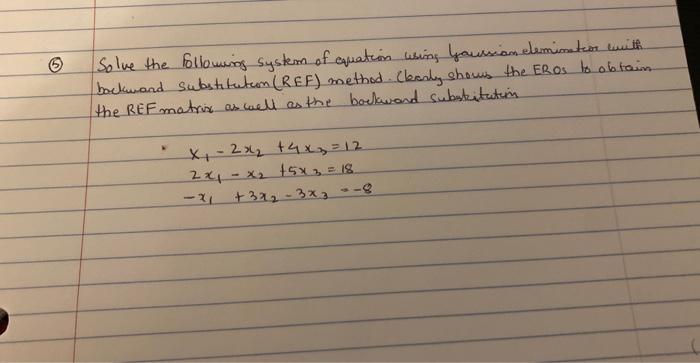 ⑤ Solve the following system of equation using Gaussian elemination with
backward substitution (REF) method. Clearly shows the EROs to obtain
the REF matrix as well as the backward substitution
x₁ - 2x₂ + 4x₃ = 12
2x₁ - x₂ + 5x₃ = 18
-x₁ + 3x₂ - 3x₃ = -8